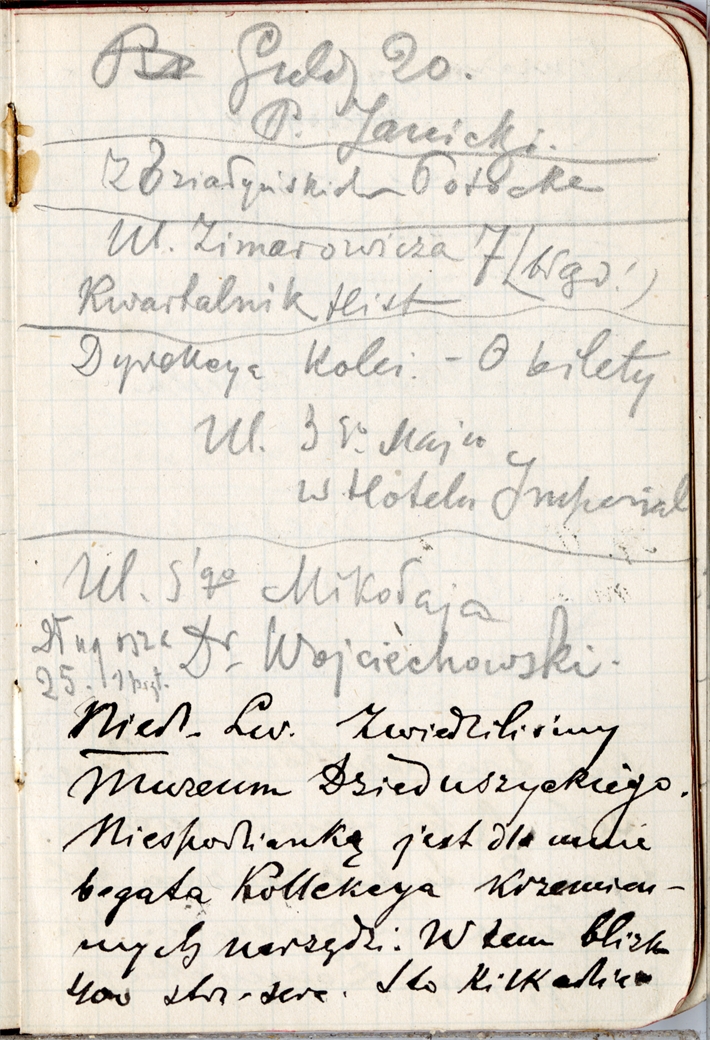 20.
P. Janicki.
Z Działyńskich Potocka
Ul. Zimorowicza 7
Kwartalnik Hist
Dyrekcya Kolei. - O bilety
Ul. 3 go Maja
w Hotelu Imperial
Ul. S'go Mikołaja
Długosza Dr. Wojciechowski.
25. 1 pszt.
Niedz. Lw. Zwiedziliśmy
Muzeum Dzieduszyckiego.
Niespodzianką jest dla mnie
bogata Kollekcya krzemien-
nych narzędzi. W tem blizk
400 . Sto Kilkadzie